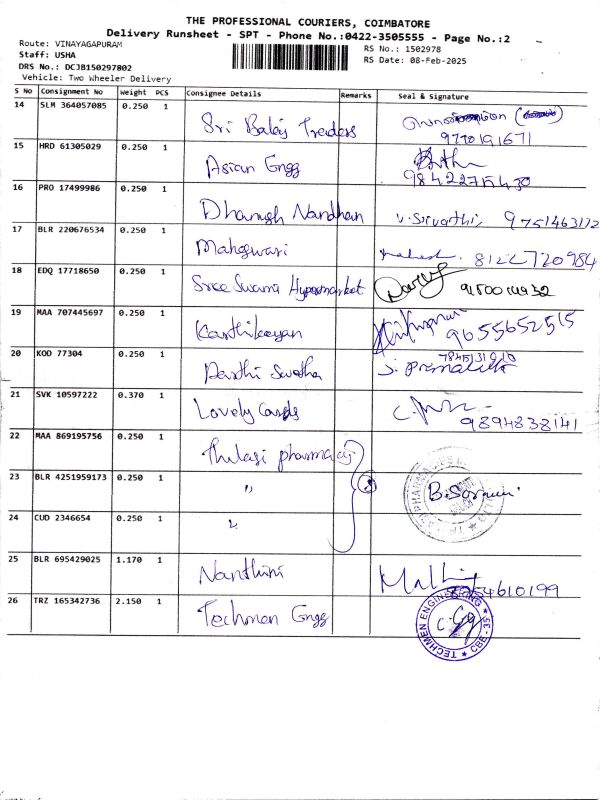 THE PROFESSIONAL COURIERS, COIMBATORE
Delivery Runsheet - SPT - Phone No.:0422-3505555 - Page No.:2
Route: VINAYAGAPURAM
RS No.: 1502978
Staff: USHA
RS Date: 08-Feb-2025
DRS No.: DCJB150297802
Vehicle: Two Wheeler Delivery
S No Consignment No Weight PCS Consignee Details Remarks Seal & Signature
14 SLM 364057085 0.250 1 Sri Balaj Traders
9770191671
15 HRD 61305029 0.250 1 Asian Engg
9842275430
16 PRO 17499986 0.250 1 Dhanush Nandhan 9751463172
17 BLR 220676534 0.250 1 Maheswari Mahesh. 8122720984
18 EDQ 17718650 0.250 1 Sree Swarna Hypermarket
19 MAA 707445697 0.250 1 Karthikeyan 9655652515
20 KOD 77304 0.250 1
21 SVK 10597222 0.370 1 Lovely Cards
9894838141
22 MAA 869195756 0.250 1 Thulasi pharmacy
23 BLR 4251959173 0.250 1 " 3
24 CUD 2346654 0.250 1 "
25 BLR 695429025 1.170 1 Nanthini
26 TRZ 165342736 2.150 1 Techmen Engg
TECHMEN ENGINEERING ★ CBE - 35 ★